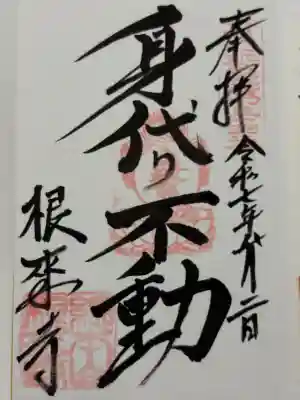 奉拝 令和七年廿月二日
身代り不動
根来寺